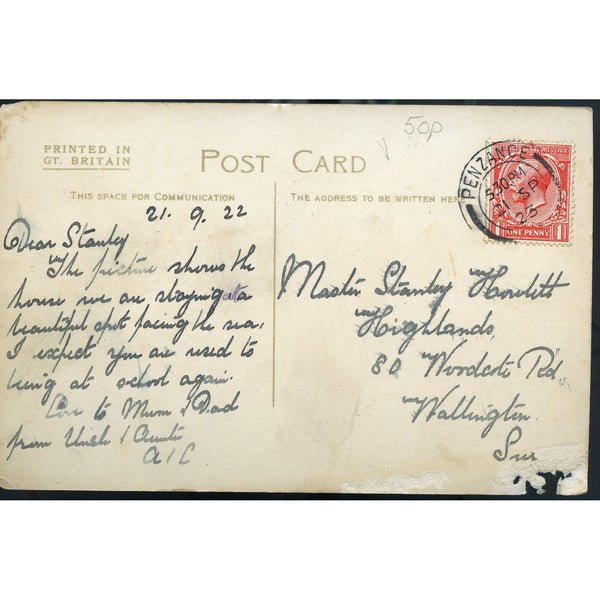 50p
PRINTED IN
GT. BRITAIN
POST CARD
THIS SPACE FOR COMMUNICATION
THE ADDRESS TO BE WRITTEN HERE
PENZANCE
5.30 PM
SP
23
ONE PENNY
21. 9. 22
Dear Stanley
The picture shows the
house we are staying at a
beautiful spot facing the sea.
I expect you are used to
being at school again.
Love to Mum & Dad
from Uncle & Auntie
Master Stanley Howlitt
Highlands,
80 Woodcote Rd
Wallington.
Sur